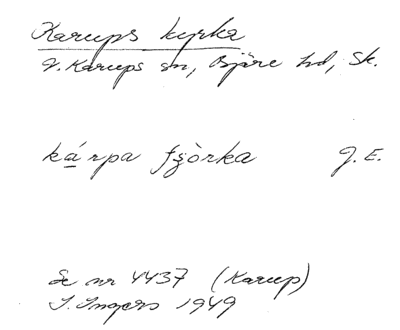 Karups kyrka
V. Karups sn, Bjäre hd, Sk.
kárpa fʒòrka J. E.
Se nr 4437 (Karup)
I. Ingers 1949